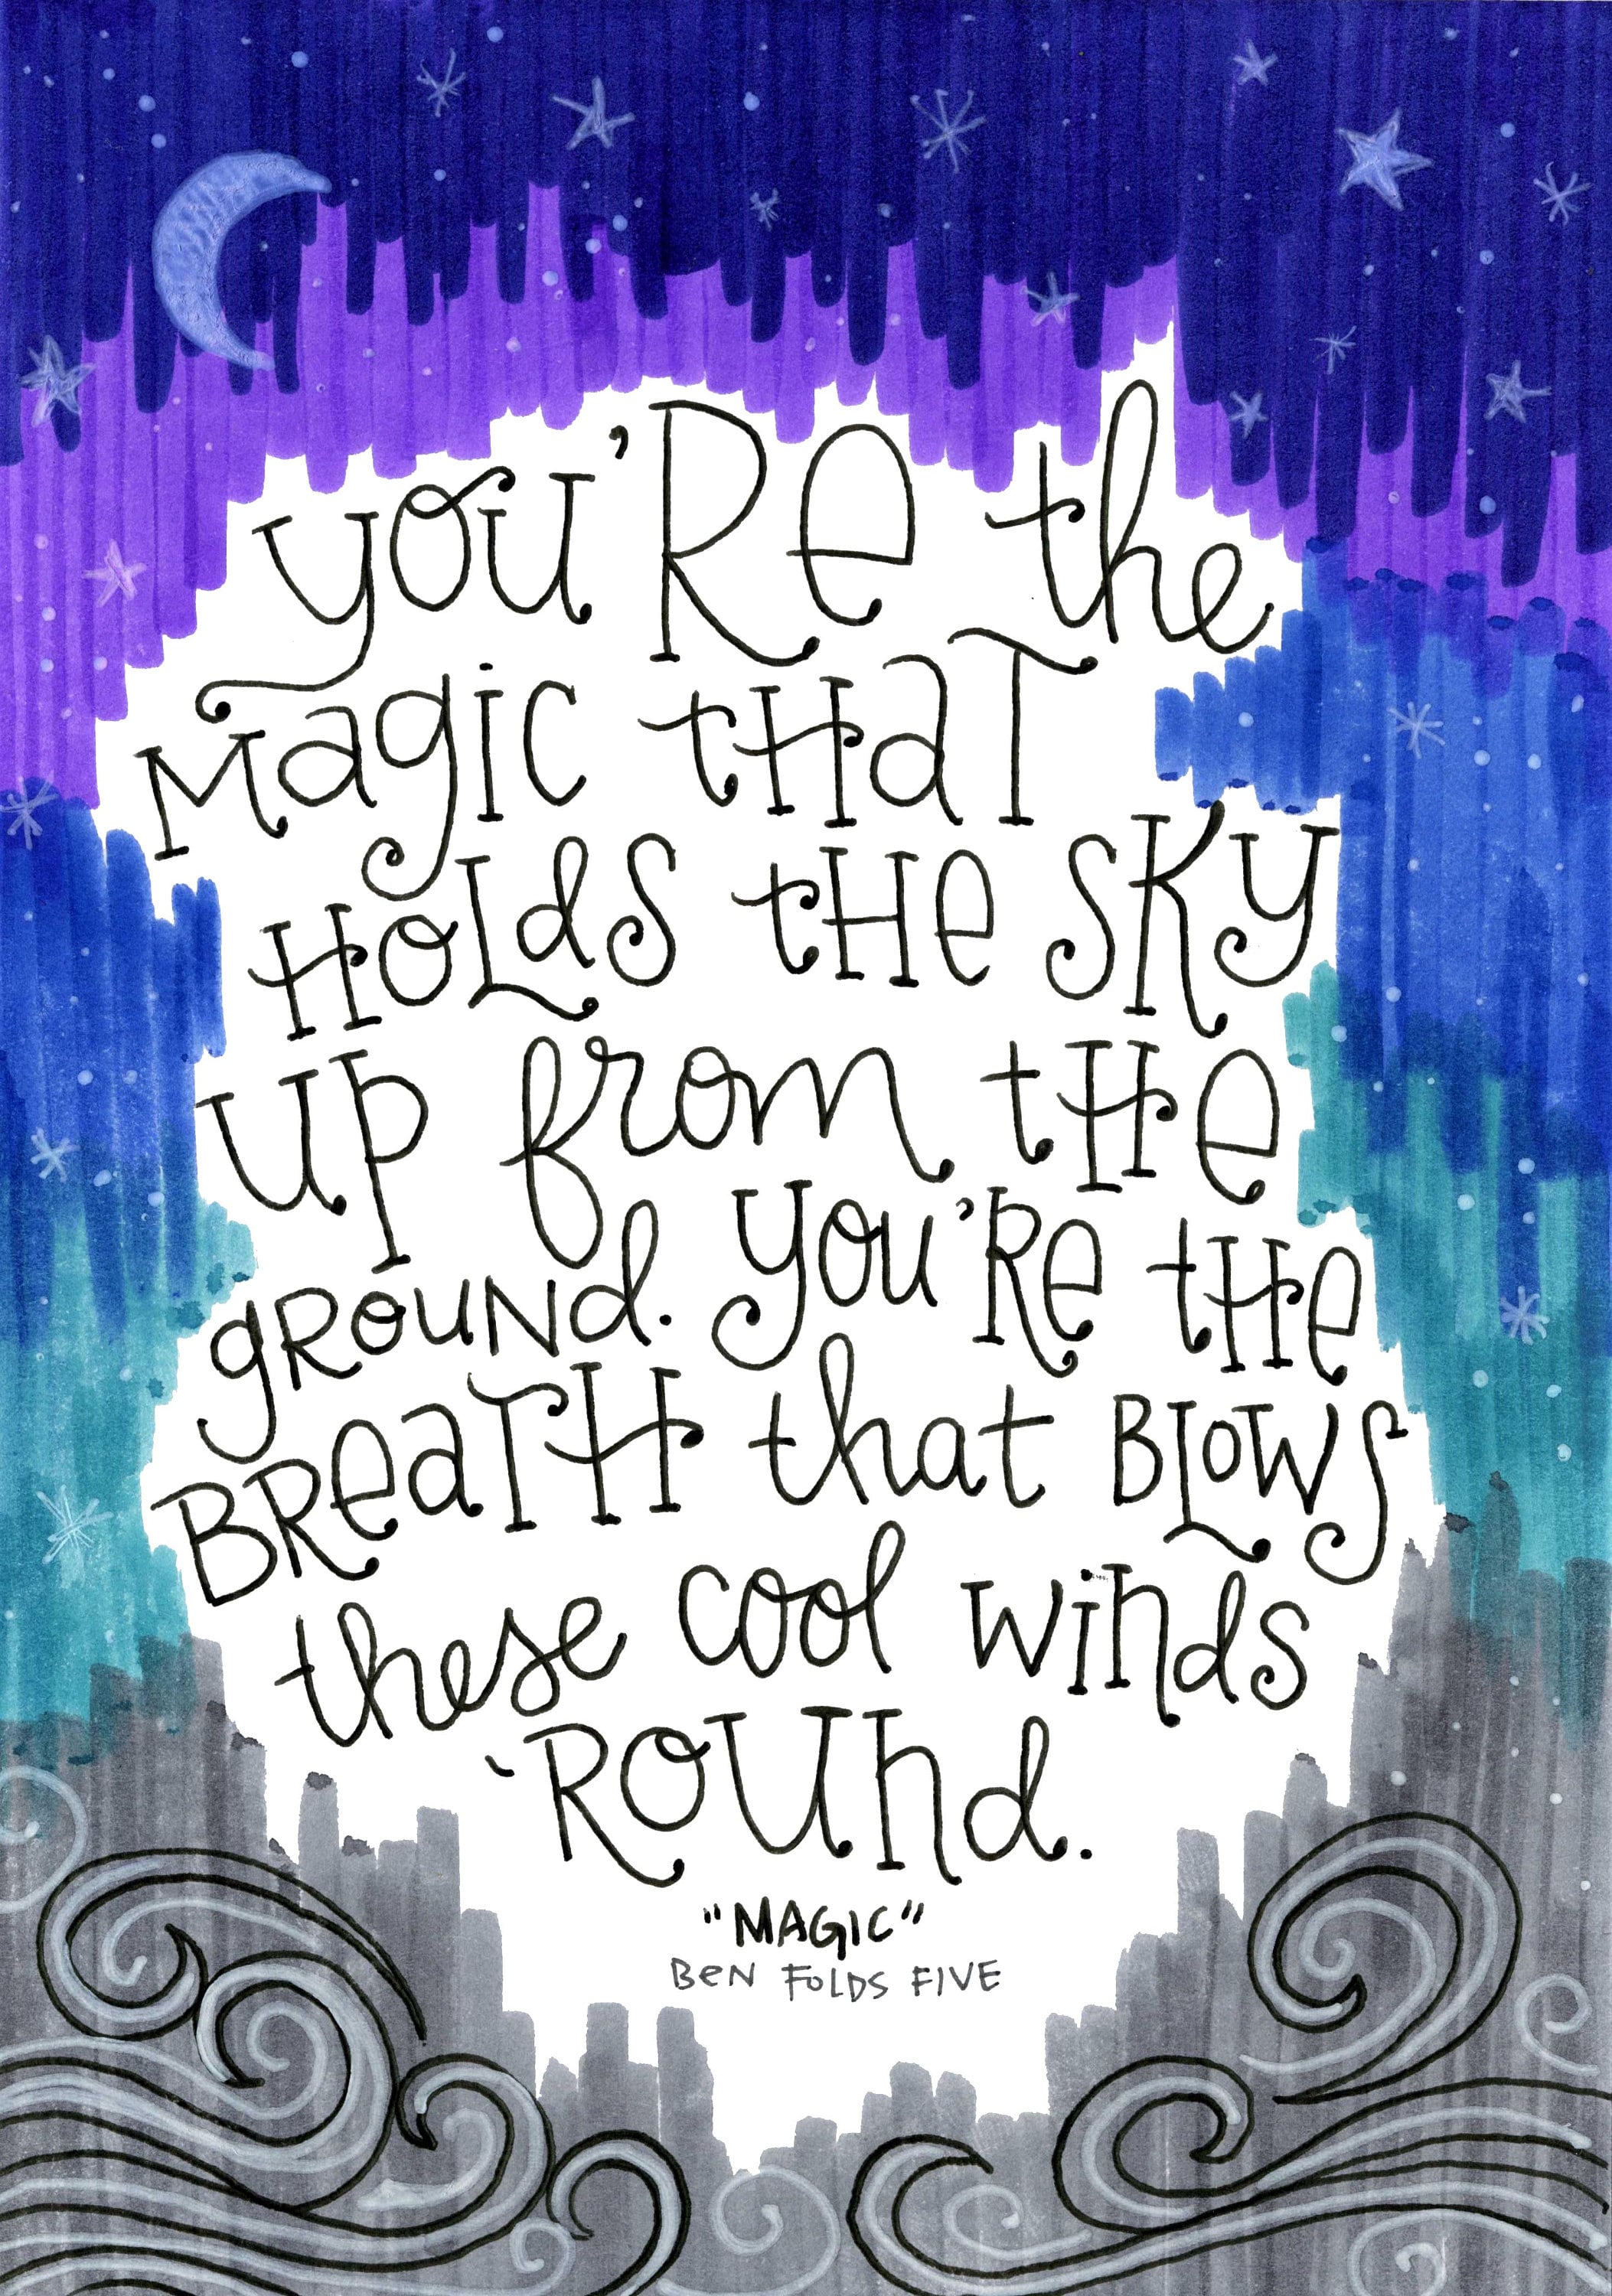 you're the
magic that
holds the sky
up from the
ground. you're the
breath that blows
these cool winds
'round.
"MAGIC"
BEN FOLDS FIVE